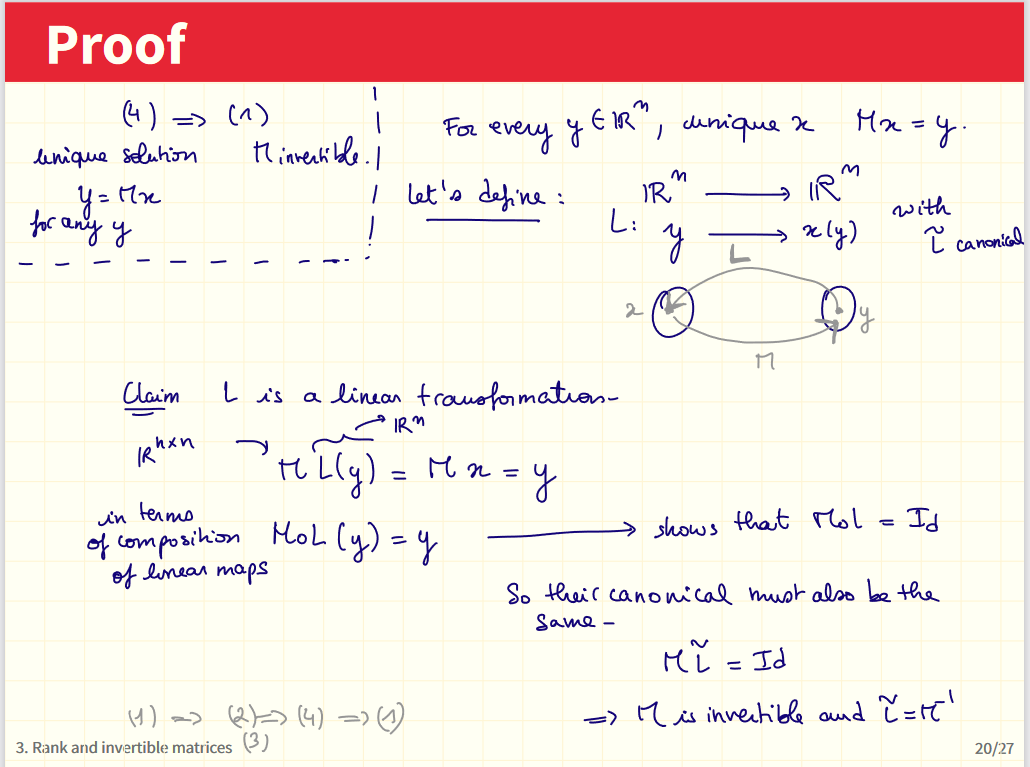 Proof
(4) => (1)
unique solution M invertible.
y = Mx
for any y
For every y ∈ ℝⁿ, unique x Mx = y.
let's define :
ℝⁿ ⟶ ℝⁿ
L: y ⟶ x(y)
with
L̃ canonical
L
x
y
M
Claim L is a linear transformation-
ℝⁿˣⁿ
ℝⁿ
M L(y) = M x = y
in terms
of composition
of linear maps
MoL (y) = y ⟶ shows that MoL = Id
So their canonical must also be the
same -
M L̃ = Id
=> M is invertible and L̃ = M⁻¹
(1) => (2) => (4) => (1)
(3)
3. Rank and invertible matrices
20/27